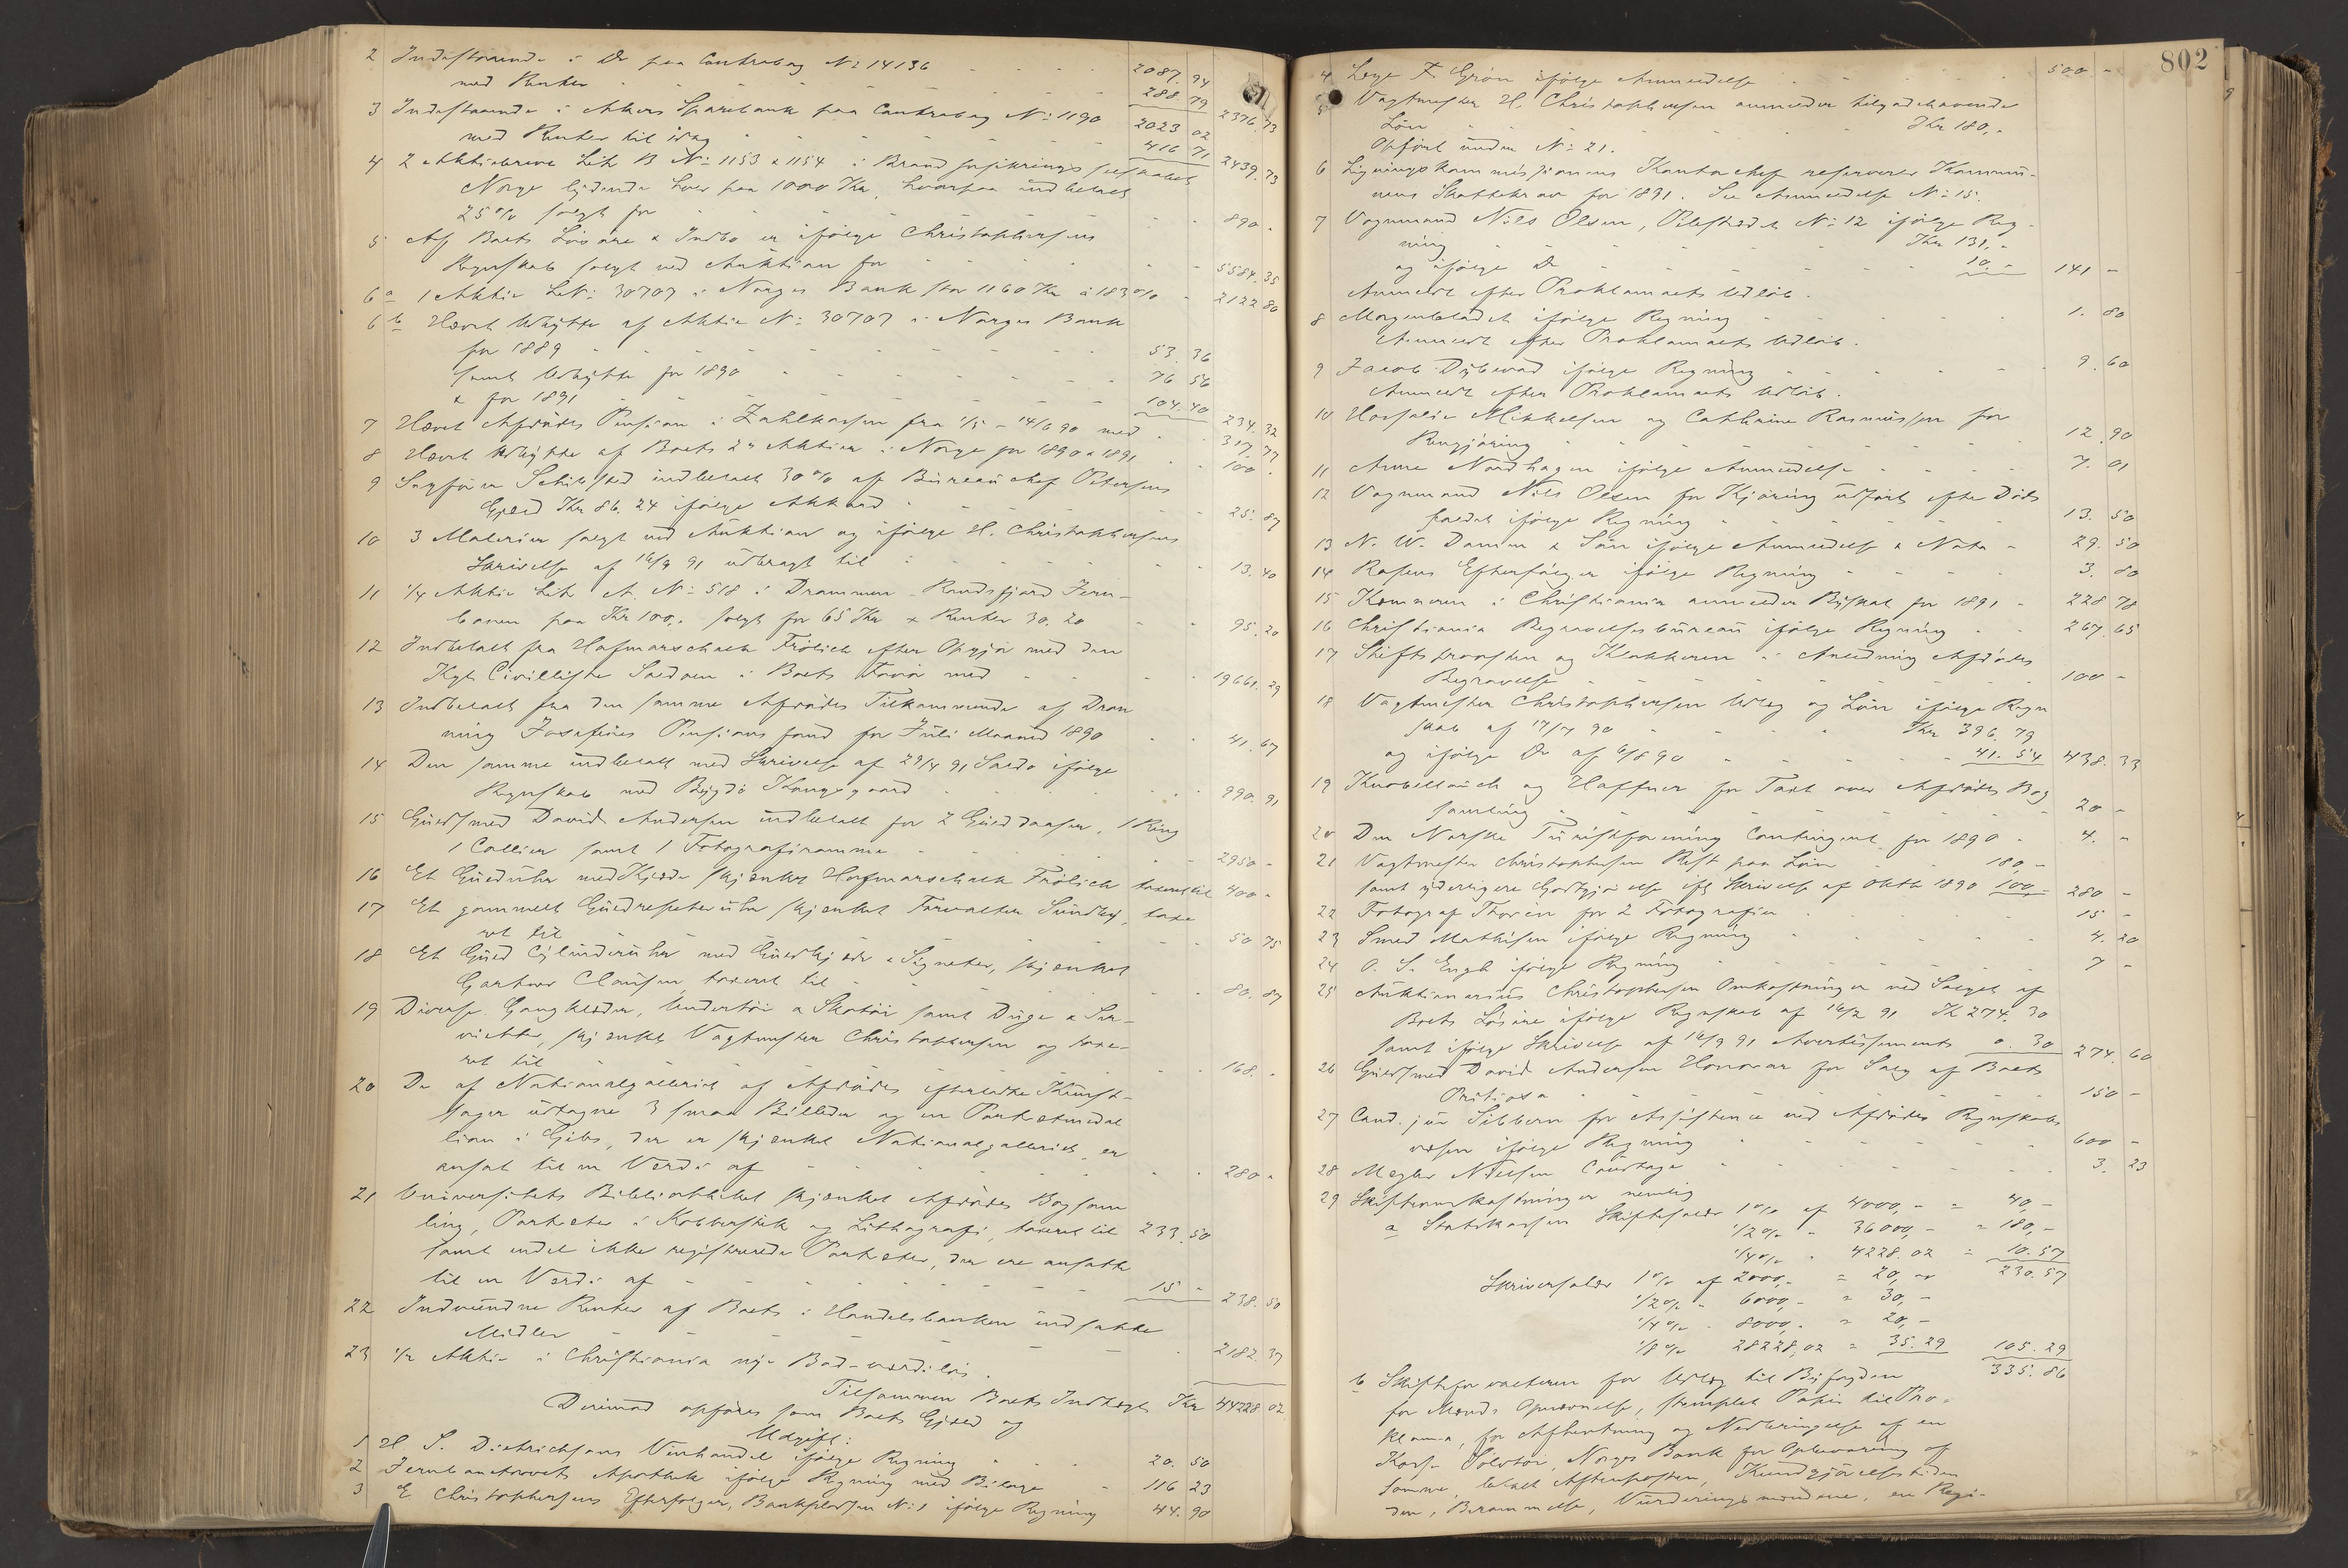 2 Indestaaende i Do paa Contrabog No 14136 2087. 94
med Renter 288 79 2376. 73
3 Indestaaende i Akers Sparebank paa Contrabog No: 1190 2023 02
med Renter til idag 416 71 2439. 73
4 2 Aktiebreve Litr B No: 1153 & 1154 i Brandforsikringsselskabet
Norge lydende hver paa 1000 Kr, hvorpaa indbetalt
25% solgt for 890 -
5 Af Boets Løsøre & Indbo er ifølge Christophersens
Regnskab solgt ved Auktion for 5584. 35
6 a 1 Aktie LNo: 30707 i Norges Bank stor 1160 Kr à 183% 2122 80
6 b Hævet Udbytte af Aktie No: 30707 i Norges Bank
for 1889 53. 36
samt Udbytte for 1890 76 56
& for 1891 104. 40 234. 32
7 Hævet Afdødes Pension i Zahlkassen fra 1/5 - 14/6 90 med 317. 77
8 Hævet Udbytte af Boets 2 Aktier i Norge for 1890 & 1891 100 -
9 Sagfører Schibsted indbetalt 30% af Bureauchef Petersens
Gjæld Kr 86. 24 ifølge Akkord 25. 87
10 3 Malerier solgt ved Auktion og ifølge H. Christophersens
Skrivelse af 16/9 91 udbragt til 13. 40
11 1/4 Aktie Litr A. No: 518 i Drammen - Randsfjord Jern-
banen paa Kr 100,- solgt for 65 Kr & Renter 30. 20 95. 20
12 Indbetalt fra Hofmarschalk Frölich efter Opgjør med den
Kgl. Civilliste Saldoen i Boets Favør med 19661. 29
13 Indbetalt fra den samme Afdødes Tilkommende af Dron
ning Josefines Pensionsfond for Juli Maaned 1890 41. 67
14 Den samme indbetalt med Skrivelse af 29/4 91 Saldo ifølge
Regnskab med Bygdö Kongsgaard 990. 91
15 Guldsmed David Andersen indbetalt for 2 Gulddaaser, 1 Ring
1 Collier samt 1 Fotografiramme 2950 -
16 Et Gulduhr med Kjæde skjænket Hofmarschalk Frölich taxeret til 400 -
17 Et gammelt Guldrepeteruhr skjænket Forvalter Sundby, taxe
ret til 50 75
18 Et Guld Cylinderuhr med Guldkjæde & Signeter, skjænket
Gartner Clausen, taxeret til 80. 87
19 Diverse Gangklæder, Undertøi & Skotøi samt Duge & Ser-
vietter, skjænket Vagtmester Christophersen og taxe-
ret til 168. -
20 De af Nationalgalleriet af Afdødes efterladte Kunst-
sager udtagne 3 smaa Billeder og en Portrætmedal
lion i Gibs, der er skjænket Nationalgalleriet, er
ansat til en Værdi af 280 -
21 Universitets Bibliotheket skjænket Afdødes Bogsam
ling, Portræter i Kobberstik og Lithografi, taxeret til 233. 50
samt endel ikke registrerede Portræter, der ere ansatte
til en Værdi af 15 - 238. 50
22 Indvundne Renter af Boets i Handelsbanken indsatte
Midler 2182. 37
23 1/2 Aktie i Christiania nye Bad - værdiløs.
Tilsammen Boets Indtægt Kr 44228 02.
Derimod opføres som Boets Gjæld og
Udgift:
1 H. S. Dietrichsons Vinhandel ifølge Regning 20. 50
2 Jernbanetorvets Apothek ifølge Regning med Bilage 116 23
3 E Christophersens Efterfølger, Bankpladsen No: 1 ifølge Regning 44. 90
802
4 Læge F. Grøn ifølge Anmeldelse 500 -
5 Vagtmester H. Christophersen anmelder tilgodehavende
Løn Kr 180,-
Opført under No: 21.
6 Ligningskommissionens Kontorchef reserverer Kommu-
nens Skattekrav for 1891. Se Anmeldelse No: 15.
7 Vognmand Nils Olsen, Pilestrædet No: 12 ifølge Reg-
ning Kr 131,-
og ifølge Do 10,- 141 -
Anmeldt efter Proklamaets Udløb.
8 Morgenbladet ifølge Regning 1. 80
Anmeldt efter Proklamaets Udløb.
9 Jacob Dybwad ifølge Regning 9. 60
Anmeldt efter Proklamaets Udløb.
10 Mikkelsen og Cathrine Rasmussen for
Rengjøring 12. 90
11 Anne Nordhagen ifølge Anmeldelse 7. 01
12 Vognmand Nils Olsen for Kjøring udført efter Døds
faldet ifølge Regning 13. 50
13 N. W. Damm & Søn ifølge Anmeldelse & Nota 29. 50
14 Efterfølger ifølge Regning 3. 80
15 Kæmneren i Christiania anmelder Byskat for 1891 228 78
16 Christiania Begravelsesbureau ifølge Regning 267. 65
17 Stiftsprovsten og Klokkeren i Anledning Afdødes
Begravelse 100 -
18 Vagtmester Christophersen Udlæg og Løn ifølge Regn
skab af 17/7 90 Kr 396. 79
og ifølge Do af 6/8 90 41. 54 438. 33
19 Knobellauch og Haffner for Taxt over Afdødes Bog
samling 20 -
20 Den Norske Turistforening Contingent for 1890 4. -
21 Vagtmester Christophersen Rest paa Løn 180,-
samt yderligere Godtgjørelse ifl Skrivelse af Oktb 1890 100,- 280 -
22 Fotograf Thorén for 2 Fotografier 15 -
23 Smed Mathisen ifølge Regning 4. 20
24 O. S. Engh ifølge Regning 7 -
25 Auktionarius Christophersen Omkostninger ved Salget af
Boets Løsøre ifølge Regnskab af 16/2 91 Kr 274. 30
samt ifølge Skrivelse af 16/9 91 Avertissements 0. 30 274. 60
26 Guldsmed David Andersen Honorar for Salg af Boets
Pretiosa 150 -
27 Cand. jur Sibbern for Assistence ved Afdødes Regnskabs
væsen ifølge Regning 600 -
28 Megler Nielsen Courtage 3. 23
29 Skifteomkostninger nemlig
a Statskassen Skiftesalær 1% af 4000,- = 40,-
1/2% " 36000,- = 180,-
1/4% " 4228. 02 = 10. 57
230. 57
Skriversalær 1% af 2000,- = 20,-
1/2% " 6000,- = 30,-
1/4% " 8000,- = 20,-
1/8% 28228,02 = 35. 29 105. 29
335. 86
b Skifteforvalteren for Udlæg til Byfogden
for Mænds Opnævnelse, stemplet Papir til Pro-
klama, for Afhentning og Nedbringelse af en
Kasse Sølvtøi, Norges Bank for Opbevaring af
samme, betalt Aftenposten, Kundgjørelsestiden
den, Berammelse, Vurderingsmændene, en Regi-